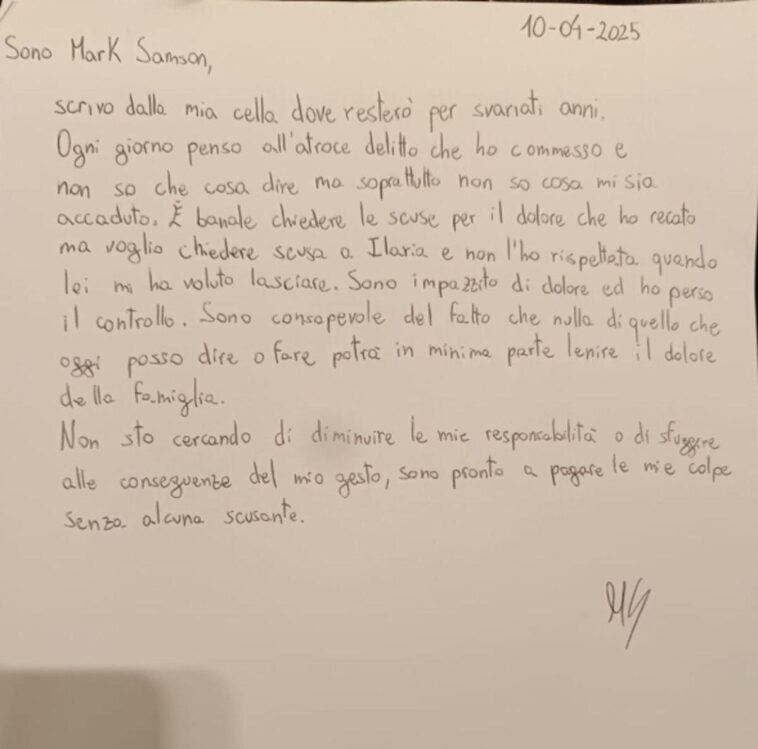 10-04-2025
Sono Mark Samson,
scrivo dalla mia cella dove resterò per svariati anni.
Ogni giorno penso all'atroce delitto che ho commesso e
non so che cosa dire ma soprattutto non so cosa mi sia
accaduto. È banale chiedere le scuse per il dolore che ho recato
ma voglio chiedere scusa a Ilaria e non l'ho rispettata quando
lei mi ha voluto lasciare. Sono impazzito di dolore ed ho perso
il controllo. Sono consapevole del fatto che nulla di quello che
oggi posso dire o fare potrà in minima parte lenire il dolore
della famiglia.
Non sto cercando di diminuire le mie responsabilità o di sfuggire
alle conseguenze del mio gesto, sono pronto a pagare le mie colpe
senza alcuna scusante.
MS